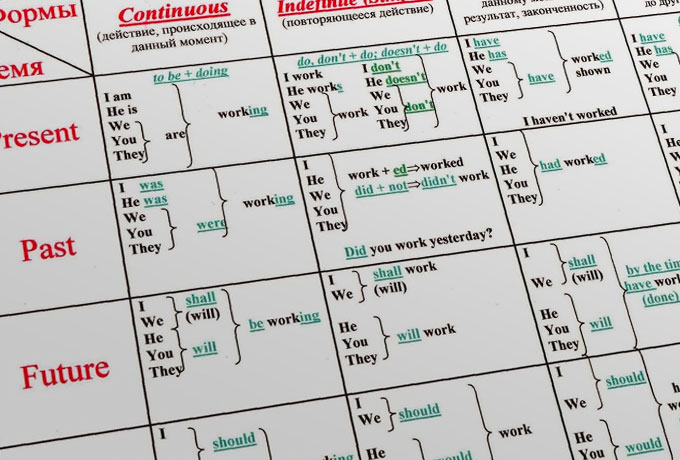 Формы
Continuous
(действие, происходящее в
данный момент)
Indefinite
(повторяющееся действие)
данному
результат, законченность)
до
Present
to be + doing
I am
He is
We
You
They
are
working
do, don't + do; doesn't + do
I work
He works
We
You
They
work
I don't
He doesn't
We
You
They
don't
work
I have
He has
We
You
They
have
worked
shown
I haven't worked
I have
He has
We
You
They
Past
I was
He was
We
You
They
were
working
I
He
We
You
They
work + ed⇒worked
did + not⇒didn't work
Did you work yesterday?
I
We
He
You
They
had worked
I
He
We
You
They
Future
I
We
shall
(will)
He
You
They
will
be working
I
We
shall work
(will)
He
You
They
will work
I
We
shall
(will)
He
You
They
will
by the
have
(done)
I
should
I
We
should
He
would
work
I
We
should
He
You
would